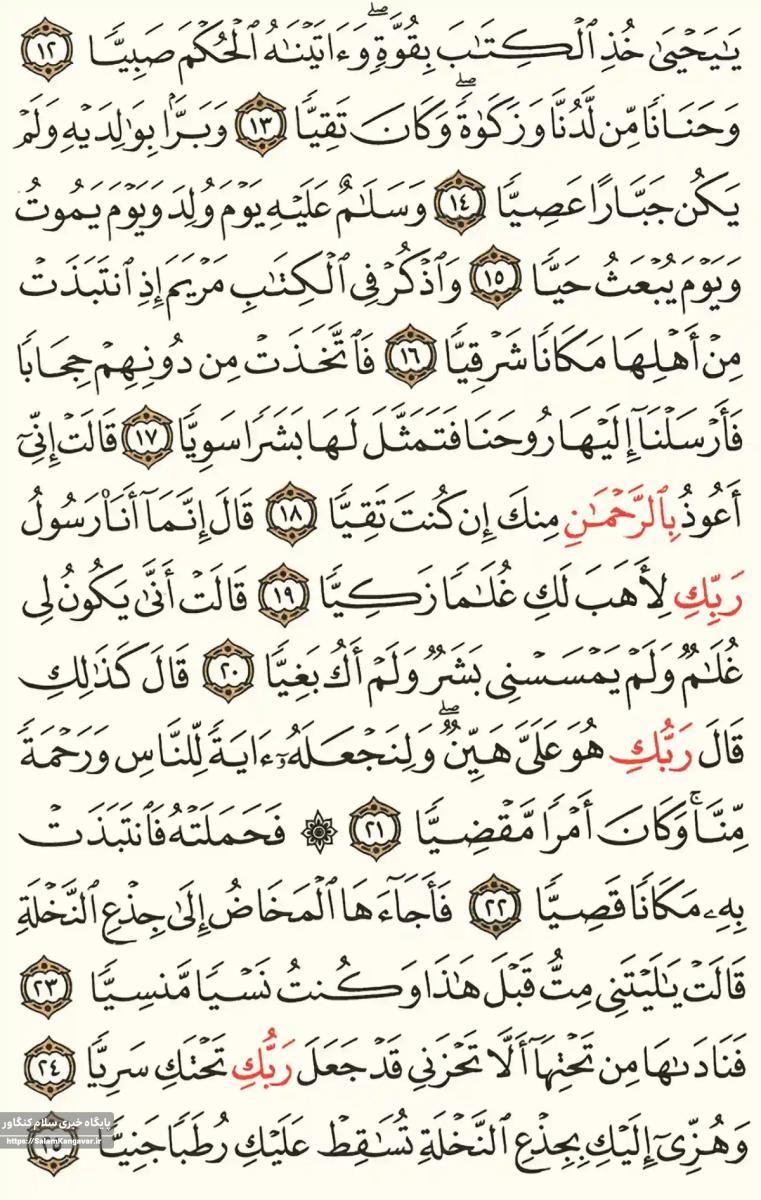 يَـٰيَحْيَىٰ خُذِ ٱلْكِتَـٰبَ بِقُوَّةٍۖ وَءَاتَيْنَـٰهُ ٱلْحُكْمَ صَبِيًّا ١٢
وَحَنَانًا مِّن لَّدُنَّا وَزَكَوٰةًۖ وَكَانَ تَقِيًّا ١٣ وَبَرًّۢا بِوَٰلِدَيْهِ وَلَمْ
يَكُن جَبَّارًا عَصِيًّا ١٤ وَسَلَـٰمٌ عَلَيْهِ يَوْمَ وُلِدَ وَيَوْمَ يَمُوتُ
وَيَوْمَ يُبْعَثُ حَيًّا ١٥ وَٱذْكُرْ فِى ٱلْكِتَـٰبِ مَرْيَمَ إِذِ ٱنتَبَذَتْ
مِنْ أَهْلِهَا مَكَانًا شَرْقِيًّا ١٦ فَٱتَّخَذَتْ مِن دُونِهِمْ حِجَابًا
فَأَرْسَلْنَآ إِلَيْهَا رُوحَنَا فَتَمَثَّلَ لَهَا بَشَرًا سَوِيًّا ١٧ قَالَتْ إِنِّىٓ
أَعُوذُ بِٱلرَّحْمَـٰنِ مِنكَ إِن كُنتَ تَقِيًّا ١٨ قَالَ إِنَّمَآ أَنَا۠ رَسُولُ
رَبِّكِ لِأَهَبَ لَكِ غُلَـٰمًا زَكِيًّا ١٩ قَالَتْ أَنَّىٰ يَكُونُ لِى
غُلَـٰمٌ وَلَمْ يَمْسَسْنِى بَشَرٌ وَلَمْ أَكُ بَغِيًّا ٢٠ قَالَ كَذَٰلِكِ
قَالَ رَبُّكِ هُوَ عَلَىَّ هَيِّنٌۖ وَلِنَجْعَلَهُۥٓ ءَايَةً لِّلنَّاسِ وَرَحْمَةً
مِّنَّاۚ وَكَانَ أَمْرًا مَّقْضِيًّا ٢١ ۞ فَحَمَلَتْهُ فَٱنتَبَذَتْ
بِهِۦ مَكَانًا قَصِيًّا ٢٢ فَأَجَآءَهَا ٱلْمَخَاضُ إِلَىٰ جِذْعِ ٱلنَّخْلَةِ
قَالَتْ يَـٰلَيْتَنِى مِتُّ قَبْلَ هَـٰذَا وَكُنتُ نَسْيًا مَّنسِيًّا ٢٣
فَنَادَىٰهَا مِن تَحْتِهَآ أَلَّا تَحْزَنِى قَدْ جَعَلَ رَبُّكِ تَحْتَكِ سَرِيًّا ٢٤
وَهُزِّىٓ إِلَيْكِ بِجِذْعِ ٱلنَّخْلَةِ تُسَـٰقِطْ عَلَيْكِ رُطَبًا جَنِيًّا ٢٥
پایگاه خبری سلام کنگاور
https://SalamKangavar.ir